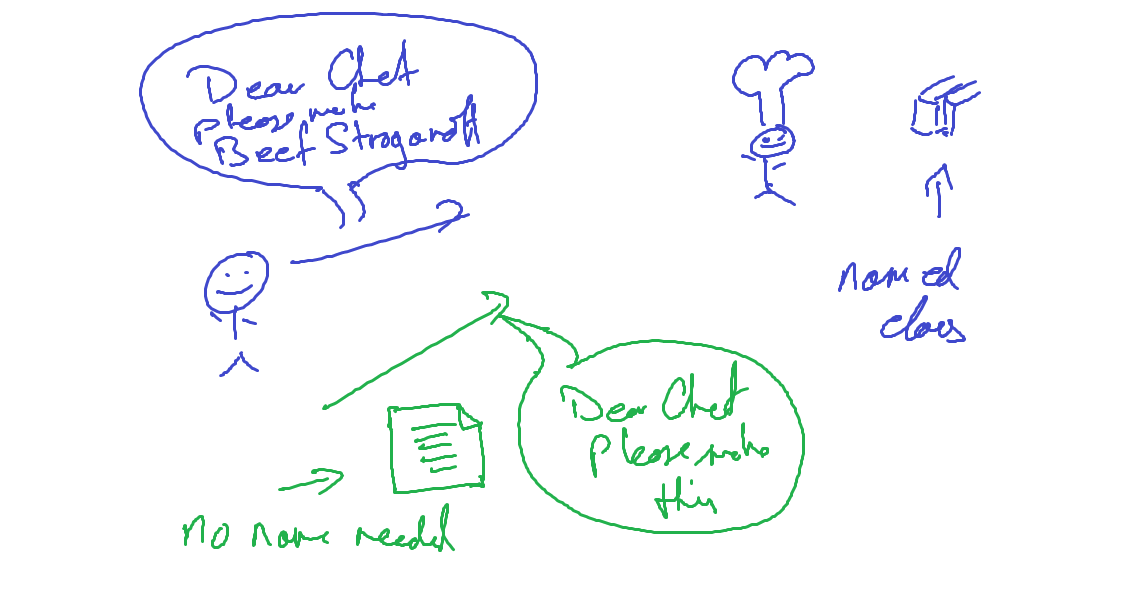 Dear Chef
please make
Beef Stroganoff
named
class
Dear Chef
Please make
this
no name needed